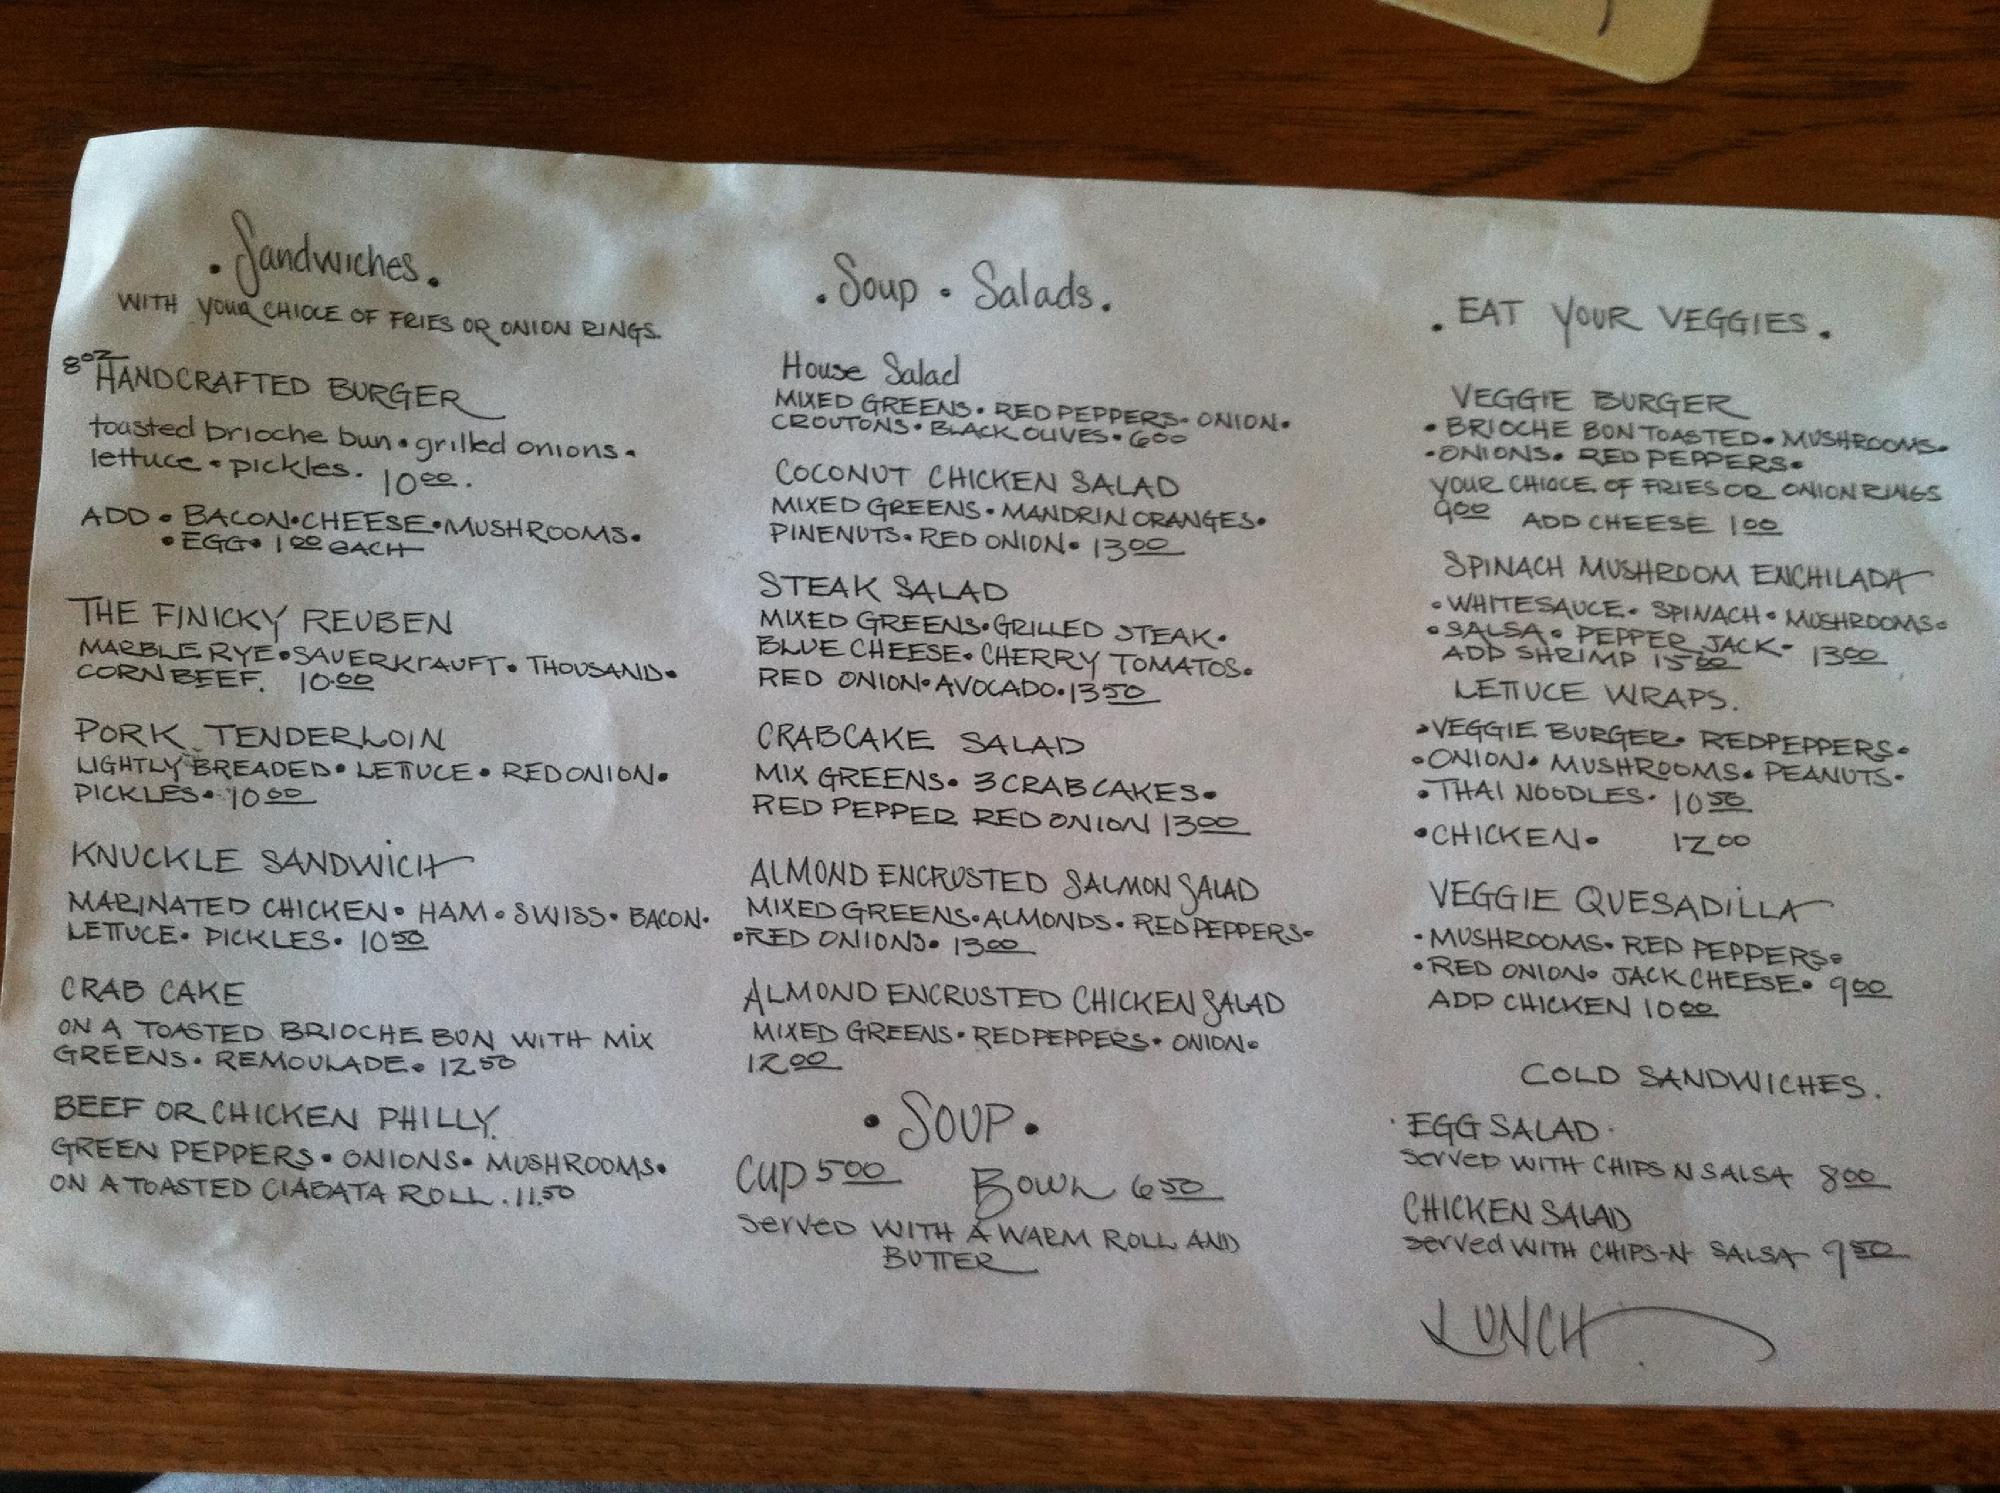 . Sandwiches .
WITH YOUR CHIOCE OF FRIES OR ONION RINGS
8oz HANDCRAFTED BURGER
toasted brioche bun • grilled onions •
lettuce • pickles. 10.00.
ADD • BACON • CHEESE • MUSHROOMS •
• EGG • 1.00 EACH
THE FINICKY REUBEN
MARBLE RYE • SAUERKRAUFT • THOUSAND •
CORNBEEF. 10.00
PORK TENDERLOIN
LIGHTLY BREADED • LETTUCE • RED ONION •
PICKLES • 10.00
KNUCKLE SANDWICH
MARINATED CHICKEN • HAM • SWISS • BACON •
LETTUCE • PICKLES • 10 50
CRAB CAKE
ON A TOASTED BRIOCHE BUN WITH MIX
GREENS • REMOULADE • 12 50
BEEF OR CHICKEN PHILLY.
GREEN PEPPERS • ONIONS • MUSHROOMS •
ON A TOASTED CIABATA ROLL . 11.50
. Soup • Salads .
House Salad
MIXED GREENS • RED PEPPERS • ONION •
CROUTONS • BLACK OLIVES • 6 00
COCONUT CHICKEN SALAD
MIXED GREENS • MANDRIN ORANGES •
PINENUTS • RED ONION • 13 00
STEAK SALAD
MIXED GREENS • GRILLED STEAK •
BLUE CHEESE • CHERRY TOMATOS •
RED ONION • AVOCADO • 13 50
CRABCAKE SALAD
MIX GREENS • 3 CRAB CAKES •
RED PEPPER RED ONION 13 00
ALMOND ENCRUSTED SALMON SALAD
MIXED GREENS • ALMONDS • RED PEPPERS •
• RED ONIONS • 13 00
ALMOND ENCRUSTED CHICKEN SALAD
MIXED GREENS • RED PEPPERS • ONION •
12 00
• SOUP •
CUP 5 00 BOWL 6 50
served WITH A WARM ROLL AND
BUTTER
. EAT YOUR VEGGIES .
VEGGIE BURGER
• BRIOCHE BUN TOASTED • MUSHROOMS •
• ONIONS • RED PEPPERS •
YOUR CHIOCE OF FRIES OR ONION RINGS
9 00 ADD CHEESE 1 00
SPINACH MUSHROOM ENCHILADA
• WHITESAUCE • SPINACH • MUSHROOMS •
• SALSA • PEPPER JACK • 13 00
ADD SHRIMP 15 00
LETTUCE WRAPS.
• VEGGIE BURGER • RED PEPPERS •
• ONION • MUSHROOMS • PEANUTS •
• THAI NOODLES • 10 50
• CHICKEN • 12 00
VEGGIE QUESADILLA
• MUSHROOMS • RED PEPPERS •
• RED ONION • JACK CHEESE • 9 00
ADD CHICKEN 10 00
COLD SANDWICHES.
EGG SALAD
served WITH CHIPS N SALSA 8 00
CHICKEN SALAD
served WITH CHIPS-N SALSA 9 50
LUNCH